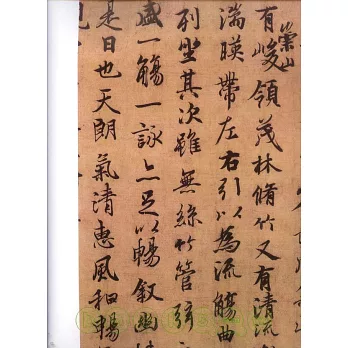 崇山
有峻領茂林脩竹又有清流
湍暎帶左右引以為流觴曲
列坐其次雖無絲竹管弦
盛一觴一詠亦足以暢叙幽
是日也天朗氣清惠風和暢